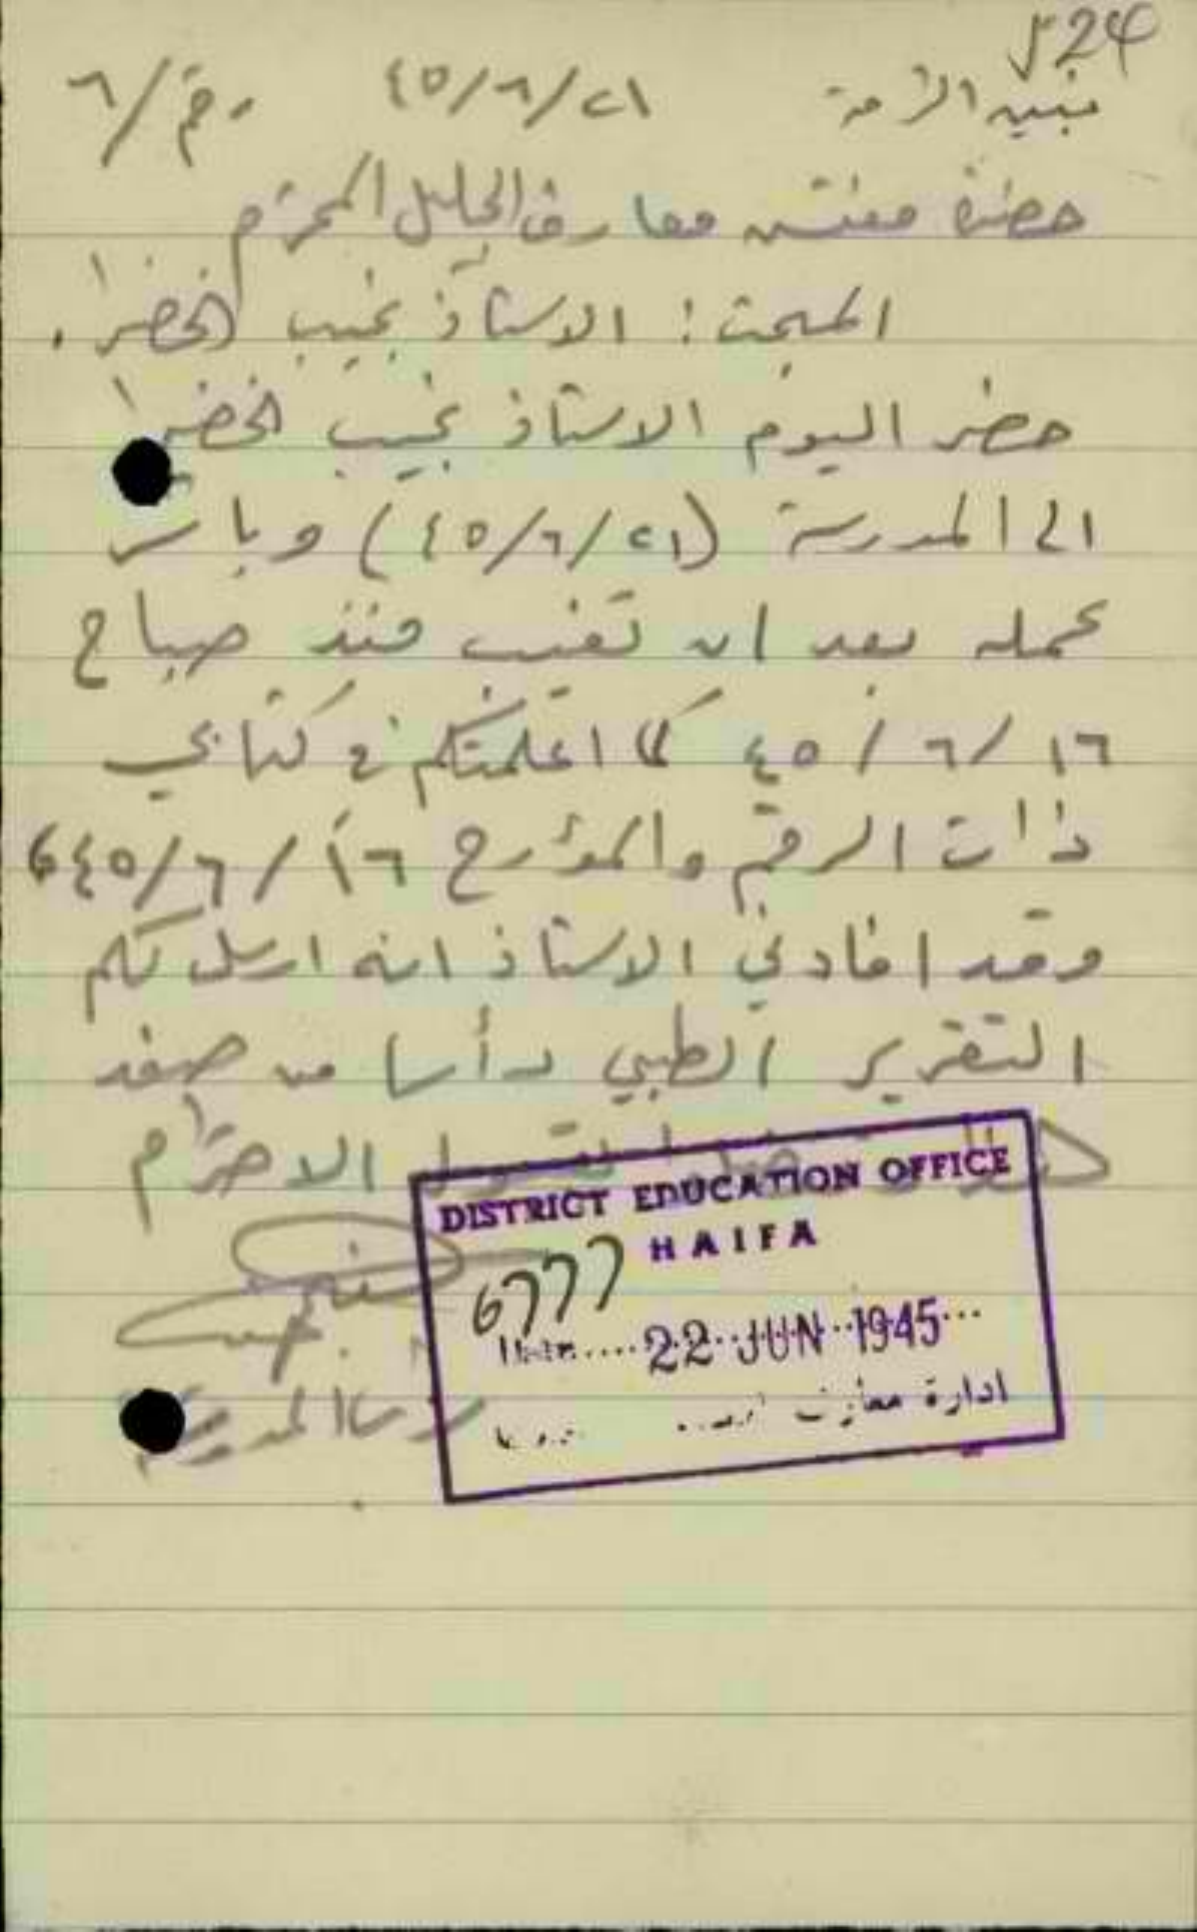 524
٢١/٦/٤٥ رقم/٦
حضرة مفتش معارف الجليل المحترم
المبحث: الاستاذ نجيب الخضرا.
حضر اليوم الاستاذ نجيب الخضرا
الى المدرسة (٢١/٦/٤٥) وباشر
عمله بعد ان تغيب منذ صباح
١٦/٦/٤٥ كما اعلمتكم في كتابي
ذات الرقم والمؤرخ ١٦/٦/٤٥،
وقد افادني الاستاذ انه ارسل لكم
التقرير الطبي رأسا من صفد
بقبول الاحترام
DISTRICT EDUCATION OFFICE
HAIFA
6777
Date....22 JUN 1945...
ادارة معارف
المدرسة